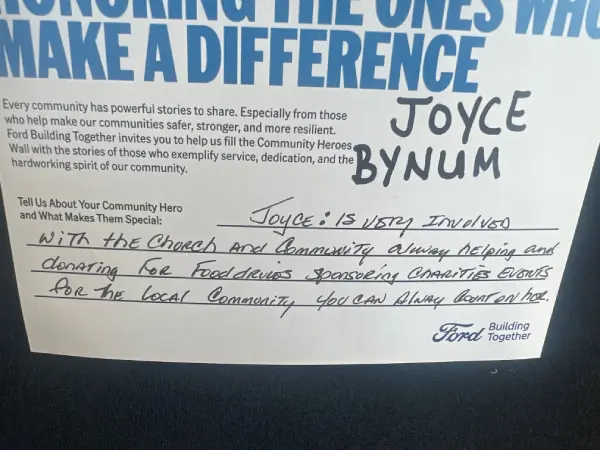 HONORING THE ONES WHO
MAKE A DIFFERENCE
Every community has powerful stories to share. Especially from those
who help make our communities safer, stronger, and more resilient.
Ford Building Together invites you to help us fill the Community Heroes
Wall with the stories of those who exemplify service, dedication, and the
hardworking spirit of our community.
JOYCE
BYNUM
Tell Us About Your Community Hero
and What Makes Them Special:
JOYCE: IS VERY INVOLVED
WITH the Church AND Community alway helping and
donating FOR Food drives sponsoring CHARITIES EVENTS
FOR THE local Community, you CAN Alway Count on her.
Ford Building
Together